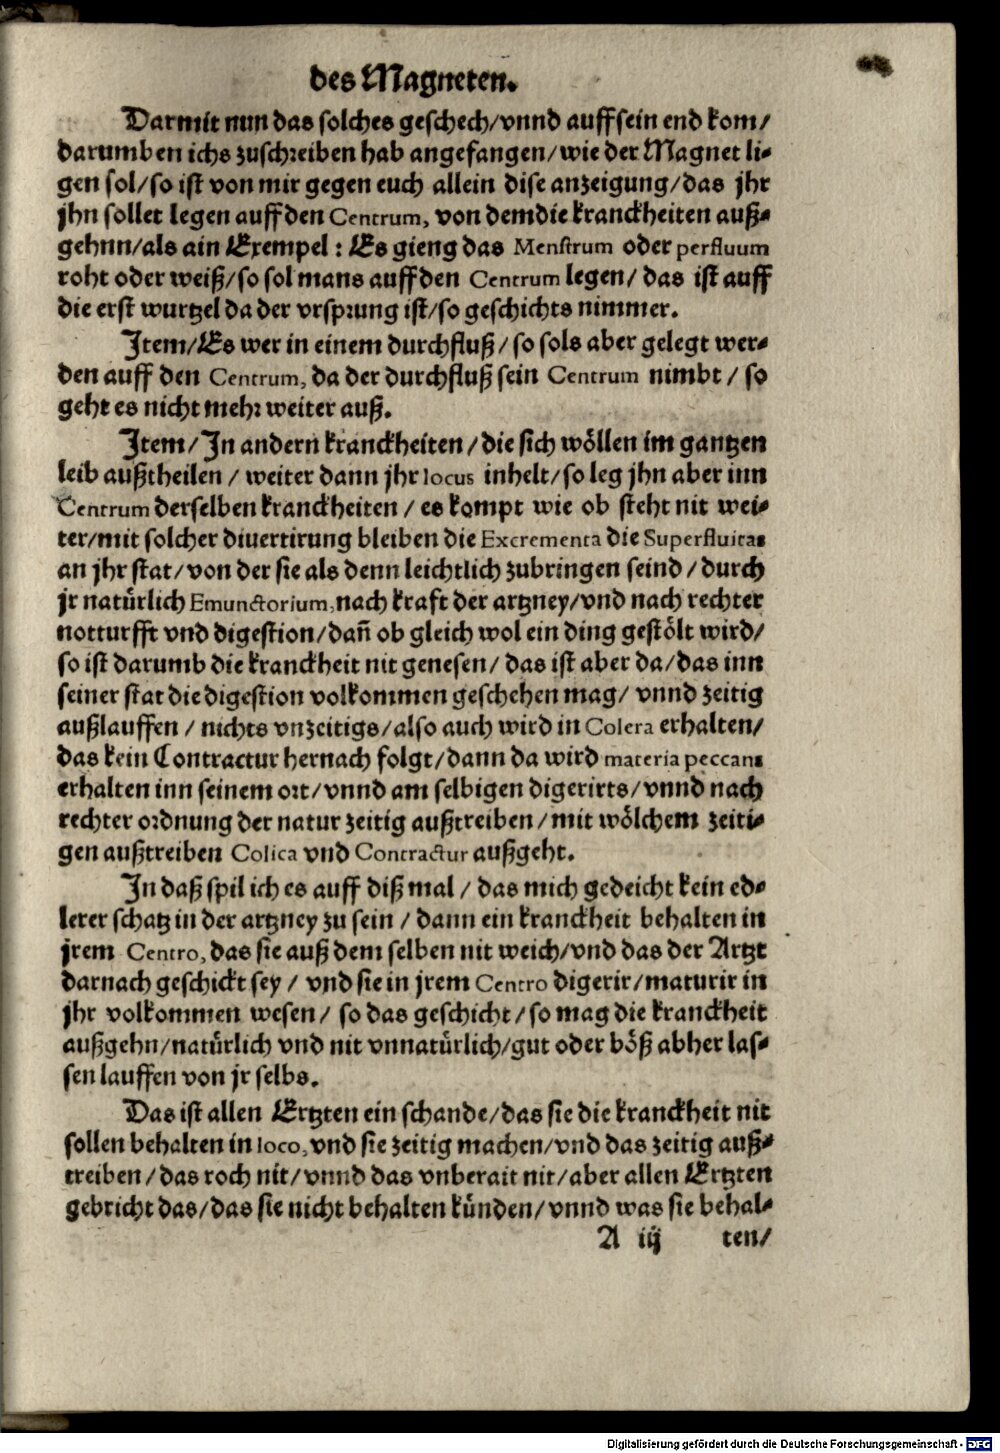 des Magneten.
Darmit nun das solches geschech/vnnd auff sein end kom/
darumben ichs zuschreiben hab angefangen/wie der Magnet li-
gen sol/so ist von mir gegen euch allein dise anzeigung/das jhr
jhn sollet legen auff den Centrum, von dem die kranckheiten auß-
gehnn/als ain Exempel: Es gieng das Menstrum oder perfluum
roht oder weiß/so sol mans auff den Centrum legen/ das ist auff
die erst wurtzel da der vrsprung ist/so geschichts nimmer.
Item/Es wer in einem durchfluß/so sols aber gelegt wer-
den auff den Centrum, da der durchfluß sein Centrum nimbt/so
geht es nicht mehr weiter auß.
Item/In andern kranckheiten/die sich wöllen im gantzen
leib außtheilen/ weiter dann jhr locus inhelt/so leg jhn aber inn
Centrum derselben kranckheiten/es kompt wie ob steht nit wei-
ter/mit solcher diuertirung bleiben die Excrementa die Superfluitas
an jhr stat/von der sie als denn leichtlich zubringen seind/durch
jr natürlich Emunctorium, nach kraft der artzney/vnd nach rechter
notturfft vnd digestion/dañ ob gleich wol ein ding gestölt wird/
so ist darumb die kranckheit nit genesen/das ist aber da/das inn
seiner stat die digestion volkommen geschehen mag/vnnd zeitig
außlauffen/nichts vnzeitigs/also auch wird in Colera erhalten/
das kein Contractur hernach folgt/dann da wird materia peccans
erhalten inn seinem ort/vnnd am selbigen digerirts/vnnd nach
rechter ordnung der natur zeitig außtreiben/mit wölchem zeiti-
gen außtreiben Colica vnd Contractur außgeht.
In daß spil ich es auff diß mal/das mich gedeicht kein ed-
lerer schatz in der artzney zu sein/dann ein kranckheit behalten in
jrem Centro, das sie auß dem selben nit weich/vnd das der Artzt
darnach geschickt sey/ vnd sie in jrem Centro digerir/maturir in
jhr volkommen wesen/ so das geschicht/so mag die kranckheit
außgehn/natürlich vnd nit vnnatürlich/gut oder böß abher las-
sen lauffen von jr selbs.
Das ist allen Ertzten ein schande/das sie die kranckheit nit
sollen behalten in loco, vnd sie zeitig machen/vnd das zeitig auß-
treiben/das roch nit/vnnd das vnberait nit/aber allen Ertzten
gebricht das/das sie nicht behalten künden/vnnd was sie behal-
A iij ten/
Digitalisierung gefördert durch die Deutsche Forschungsgemeinschaft - DFG